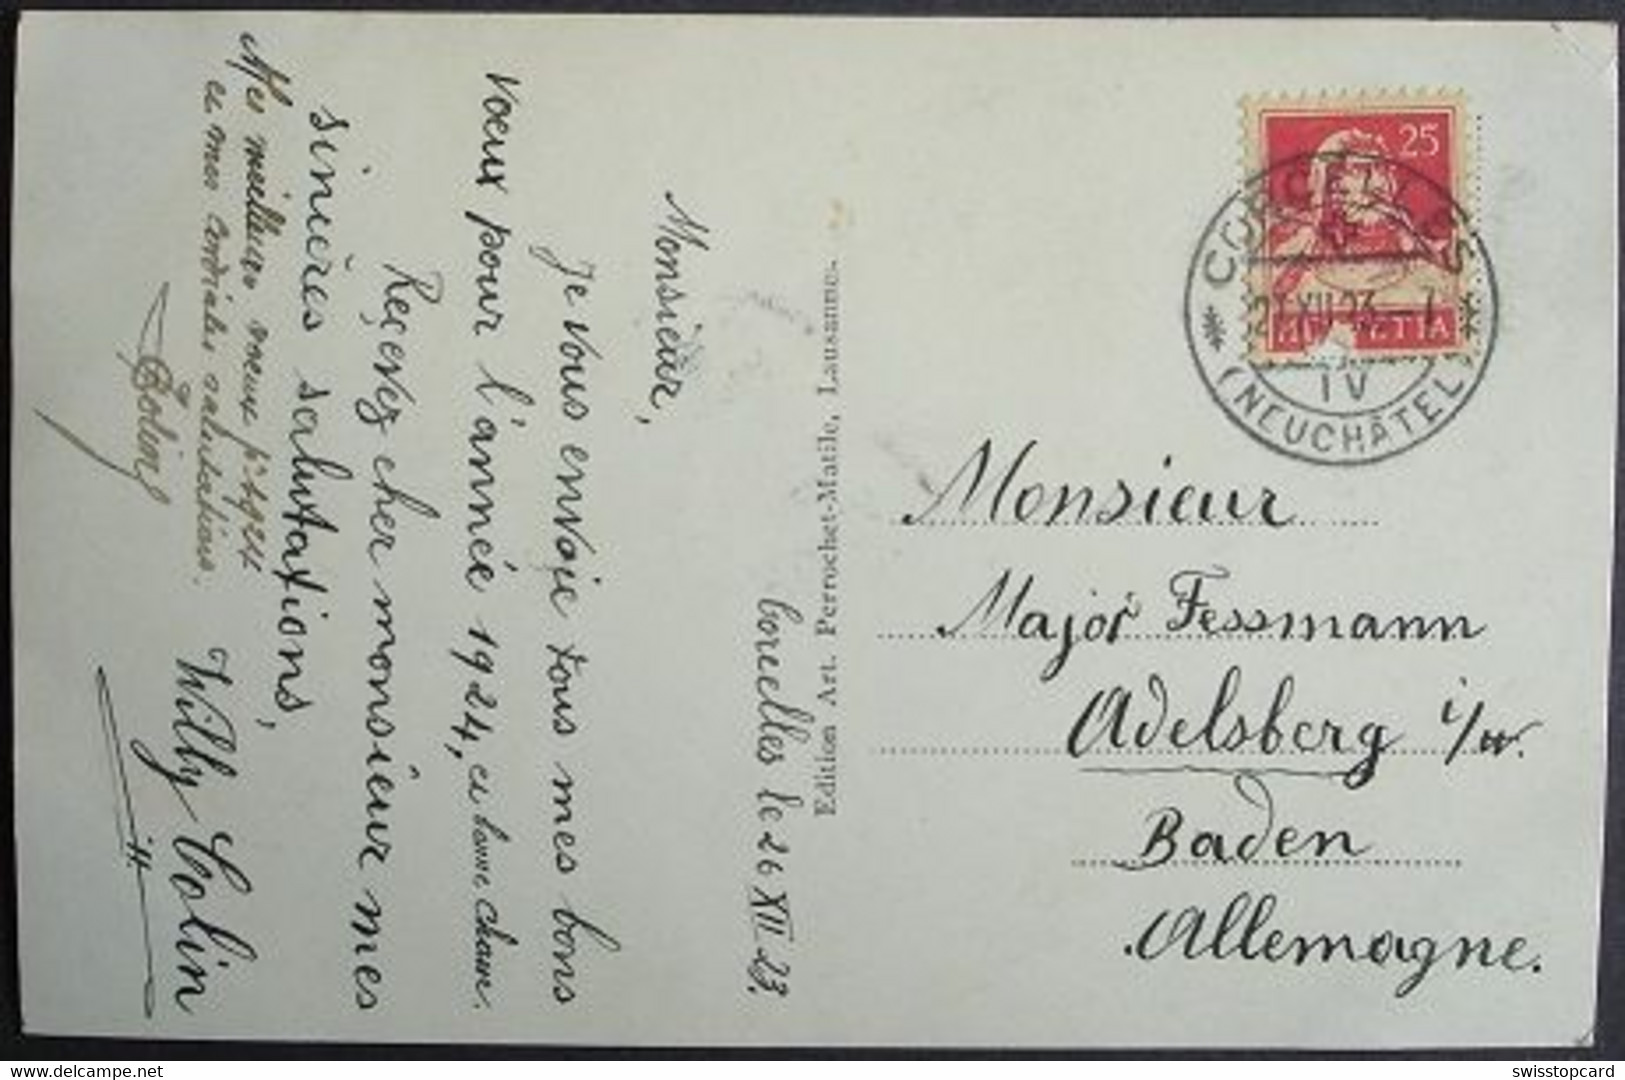 Corcelles le 26 XII 23.
Monsieur,
Je vous envoie tous mes bons
voeux pour l'année 1924, et bonne chance.
Reçevez cher monsieur mes
sinières salutations,
Willy Colin
Mes meilleurs voeux pr 1924
et mes cordiales salutations.
Colin
Edition Art. Perrochet-Matile, Lausanne.
25
HELVETIA
CORCELLES
XII.23.-7
IV
(NEUCHÂTEL)
Monsieur
Major Fessmann
Adelsberg i/W.
Baden
Allemagne.
swisstopcard